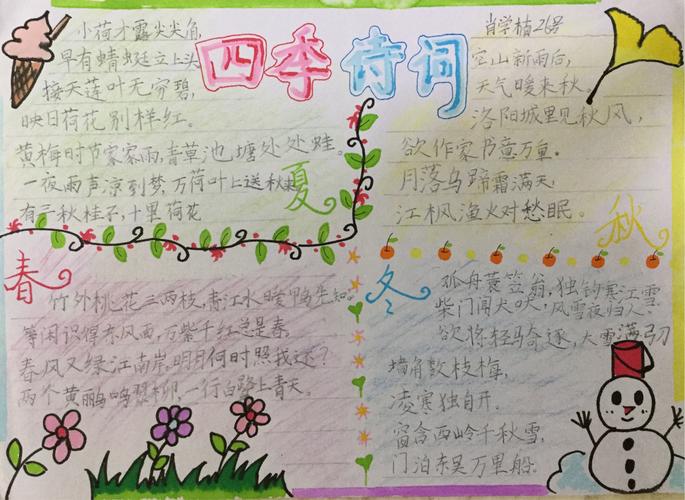 四季诗词
小荷才露尖尖角,
早有蜻蜓立上头
接天莲叶无穷碧,
映日荷花别样红。
黄梅时节家家雨,青草池塘处处蛙。
一夜雨声凉到梦,万荷叶上送秋来
有三秋桂子,十里荷花
夏
26号
空山新雨后,
天气晚来秋。
洛阳城里见秋风,
欲作家书意万重.
月落乌蹄霜满天
江枫渔火对愁眠。
秋
春
竹外桃花三两枝,春江水暖鸭先知。
等闲识得东风面,万紫千红总是春。
春风又绿江南岸,明月何时照我还?
两个黄鹂鸣翠柳,一行白鹭上青天。
冬
孤舟蓑笠翁,独钓寒江雪
柴门闻犬吠,风雪夜归人.
欲将轻骑逐,大雪满弓刀
墙角数枝梅,
凌寒独自开.
窗含西岭千秋雪,
门泊东吴万里船.